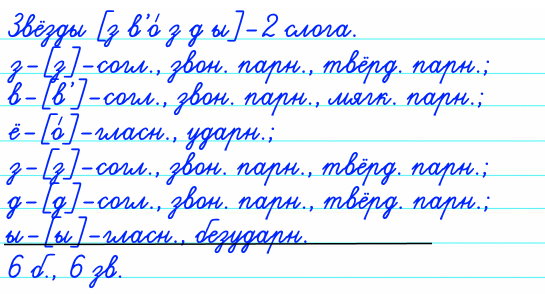 Звёзды [з в’о́ з д ы] – 2 слога.
з – [з] – согл., звон. парн., твёрд. парн.;
в – [в’] – согл., звон. парн., мягк. парн.;
ё – [о́] – гласн., ударн.;
з – [з] – согл., звон. парн., твёрд. парн.;
д – [д] – согл., звон. парн., твёрд. парн.;
ы – [ы] – гласн., безударн.
6 б., 6 зв.